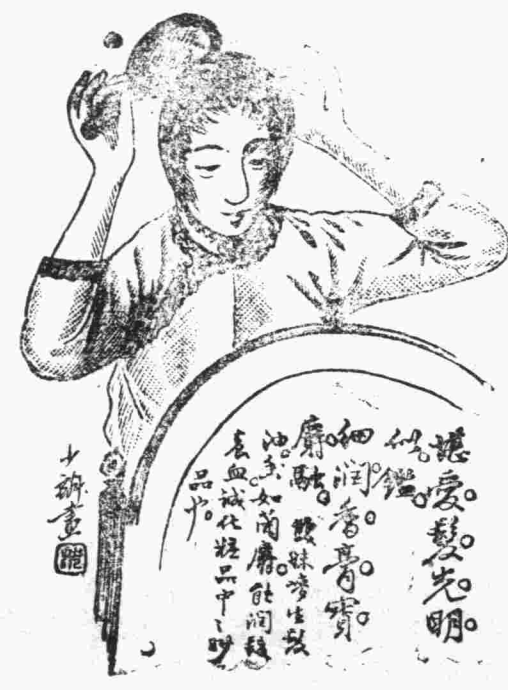 愛髮光明
似鑑。
細潤香膏寶
麝融。雙妹嘜生髮
油香如蘭麝。能潤髮
養血誠化粧品中之妙
品也。
少畫